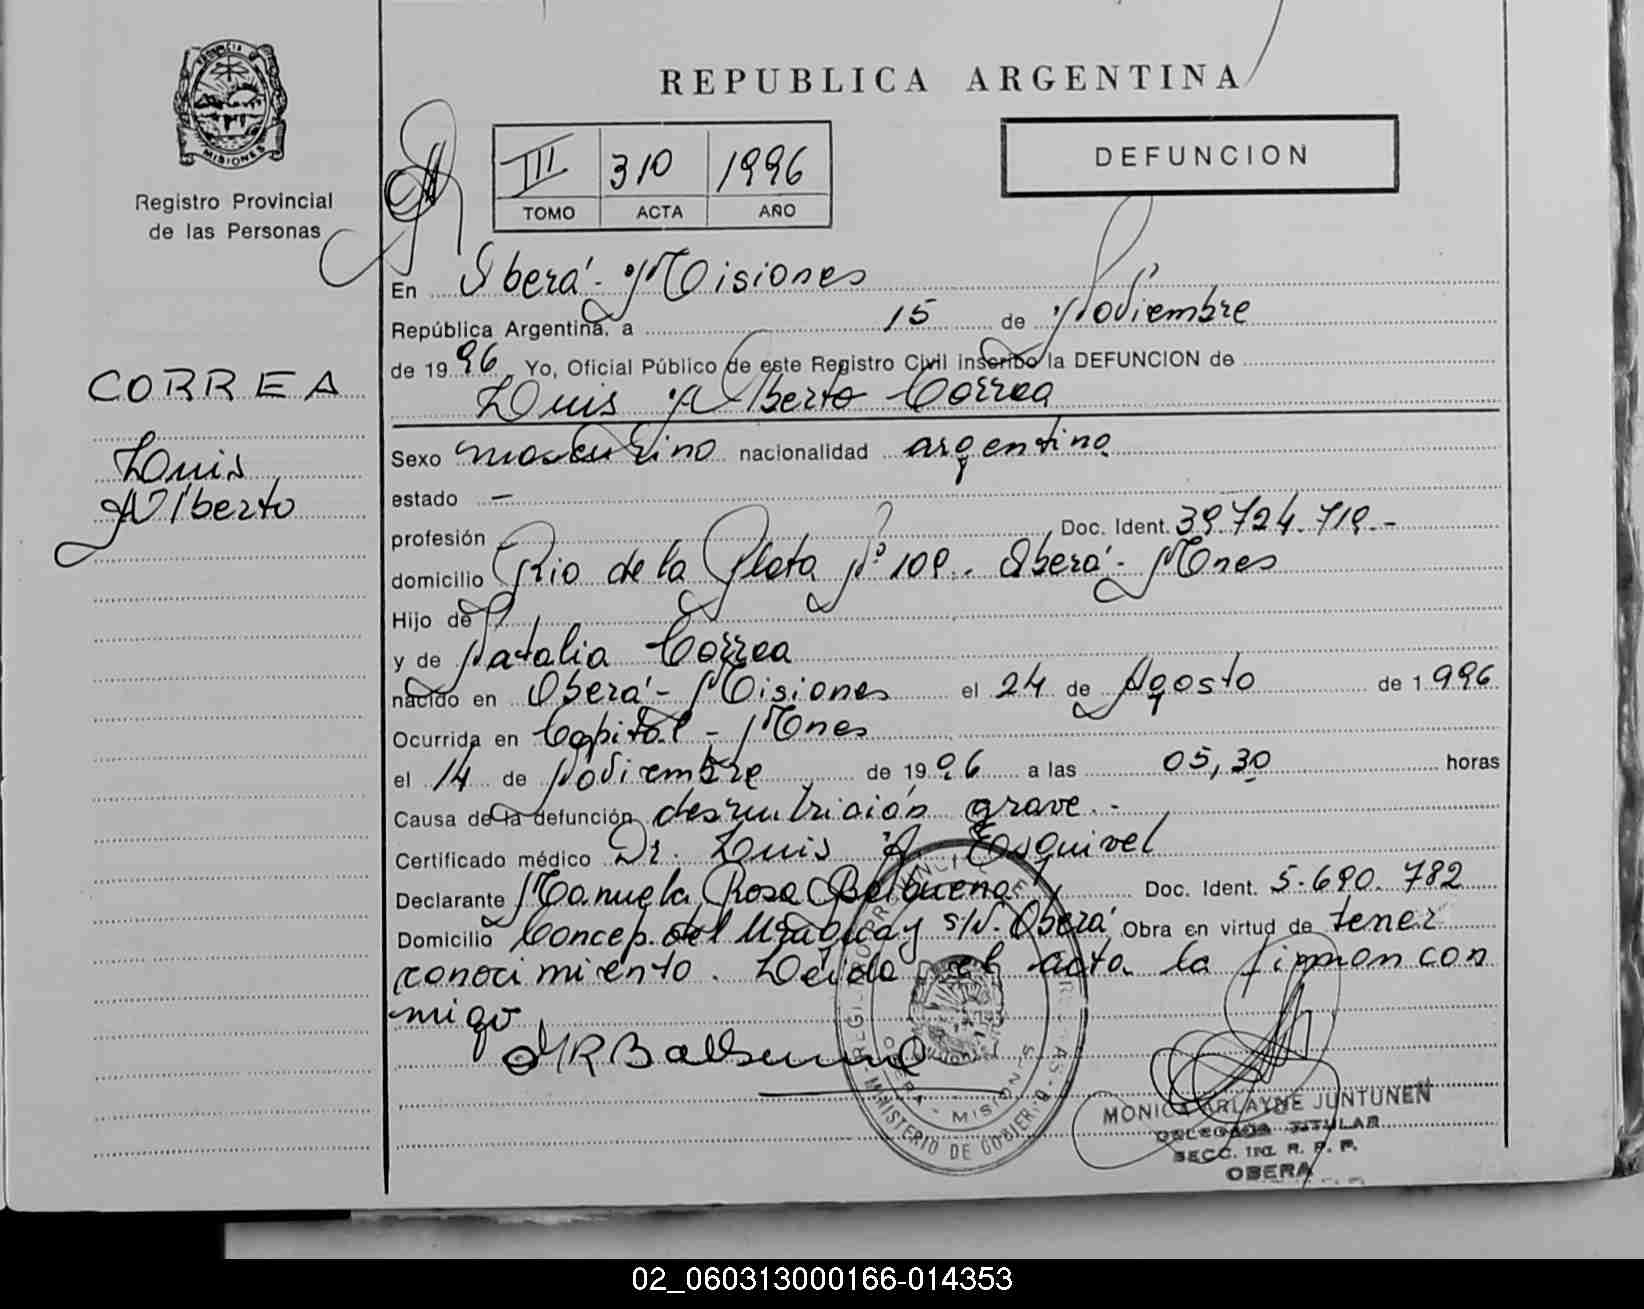 PROVINCIA DE
MISIONES
Registro Provincial
de las Personas
CORREA
Luis
Alberto
REPUBLICA ARGENTINA
III 310 1996
TOMO ACTA AÑO
DEFUNCION
En Oberá - Misiones
República Argentina, a 15 de Noviembre
de 1996 Yo, Oficial Público de este Registro Civil inscribo la DEFUNCION de
Luis Alberto Correa
Sexo masculino nacionalidad argentina
estado —
profesión — Doc. Ident. 39.724.719.-
domicilio Rio de la Plata Nº 109. Oberá - Mnes
Hijo de
y de Natalia Correa
nacido en Oberá - Misiones el 24 de Agosto de 1.996
Ocurrida en Capital - Mnes
el 14 de Noviembre de 1996 a las 05,30 horas
Causa de la defunción desnutrición grave.-
Certificado médico Dr. Luis A Esquivel
Declarante Manuela Rosa Balbuena Doc. Ident. 5.690.782
Domicilio Concep. del Uruguay s/N. Oberá Obra en virtud de tener
conocimiento. Leída el acta la firman con
migo
MRBalbuena
MINISTERIO DE GOBIERNO
OBERA - MISIONES
MONICA ARLAYNE JUNTUNEN
DELEGADA TITULAR
SECC. 1ra. R. P. P.
OBERA
02_060313000166-014353